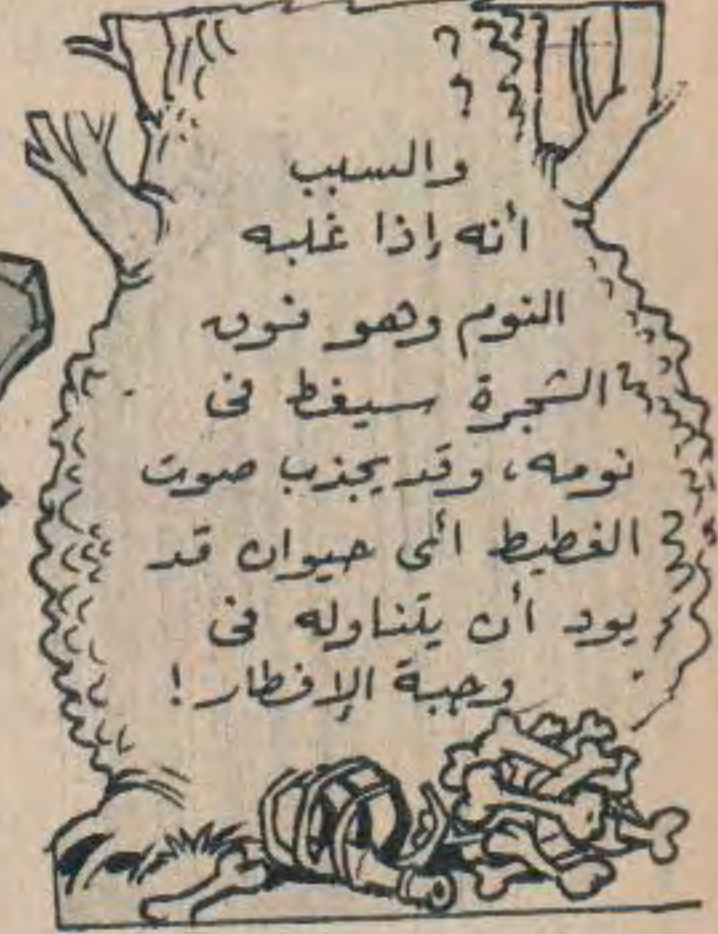 والسبب
أنه إذا غلبه
النوم وهو فوق
الشجرة سيغط فى
نومه، وقد يجذب صوت
الغطيط أى حيوان قد
يود أن يتناوله فى
وجبة الإفطار!